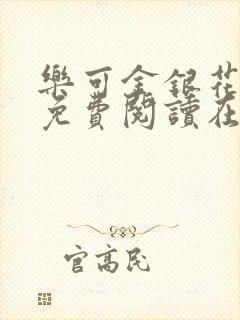 樂可金銀花
免費閱讀在
官高民